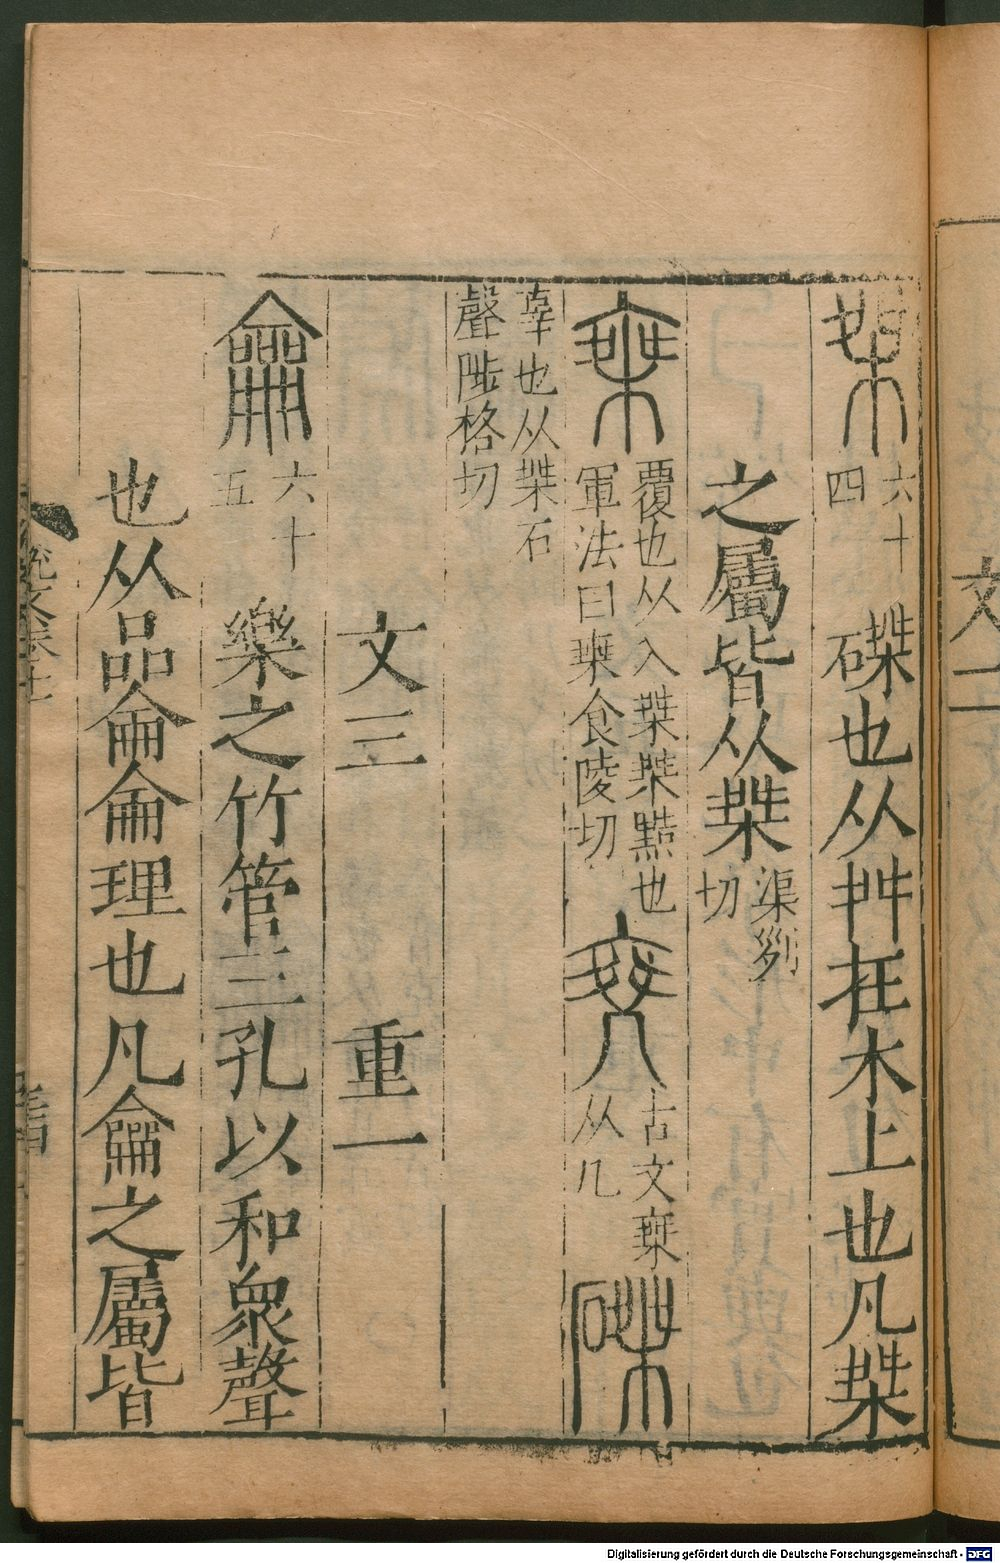 文二
桀 六十四 磔也从舛在木上也凡桀
之屬皆从桀 渠列切
椉 覆也从入桀桀黠也軍法曰椉食陵切 古文椉从几 磔
辜也从桀石聲陟格切
文三 重一
龠 六十五 樂之竹管三孔以和衆聲
也从品侖侖理也凡龠之屬皆
Digitalisierung gefördert durch die Deutsche Forschungsgemeinschaft - DFG